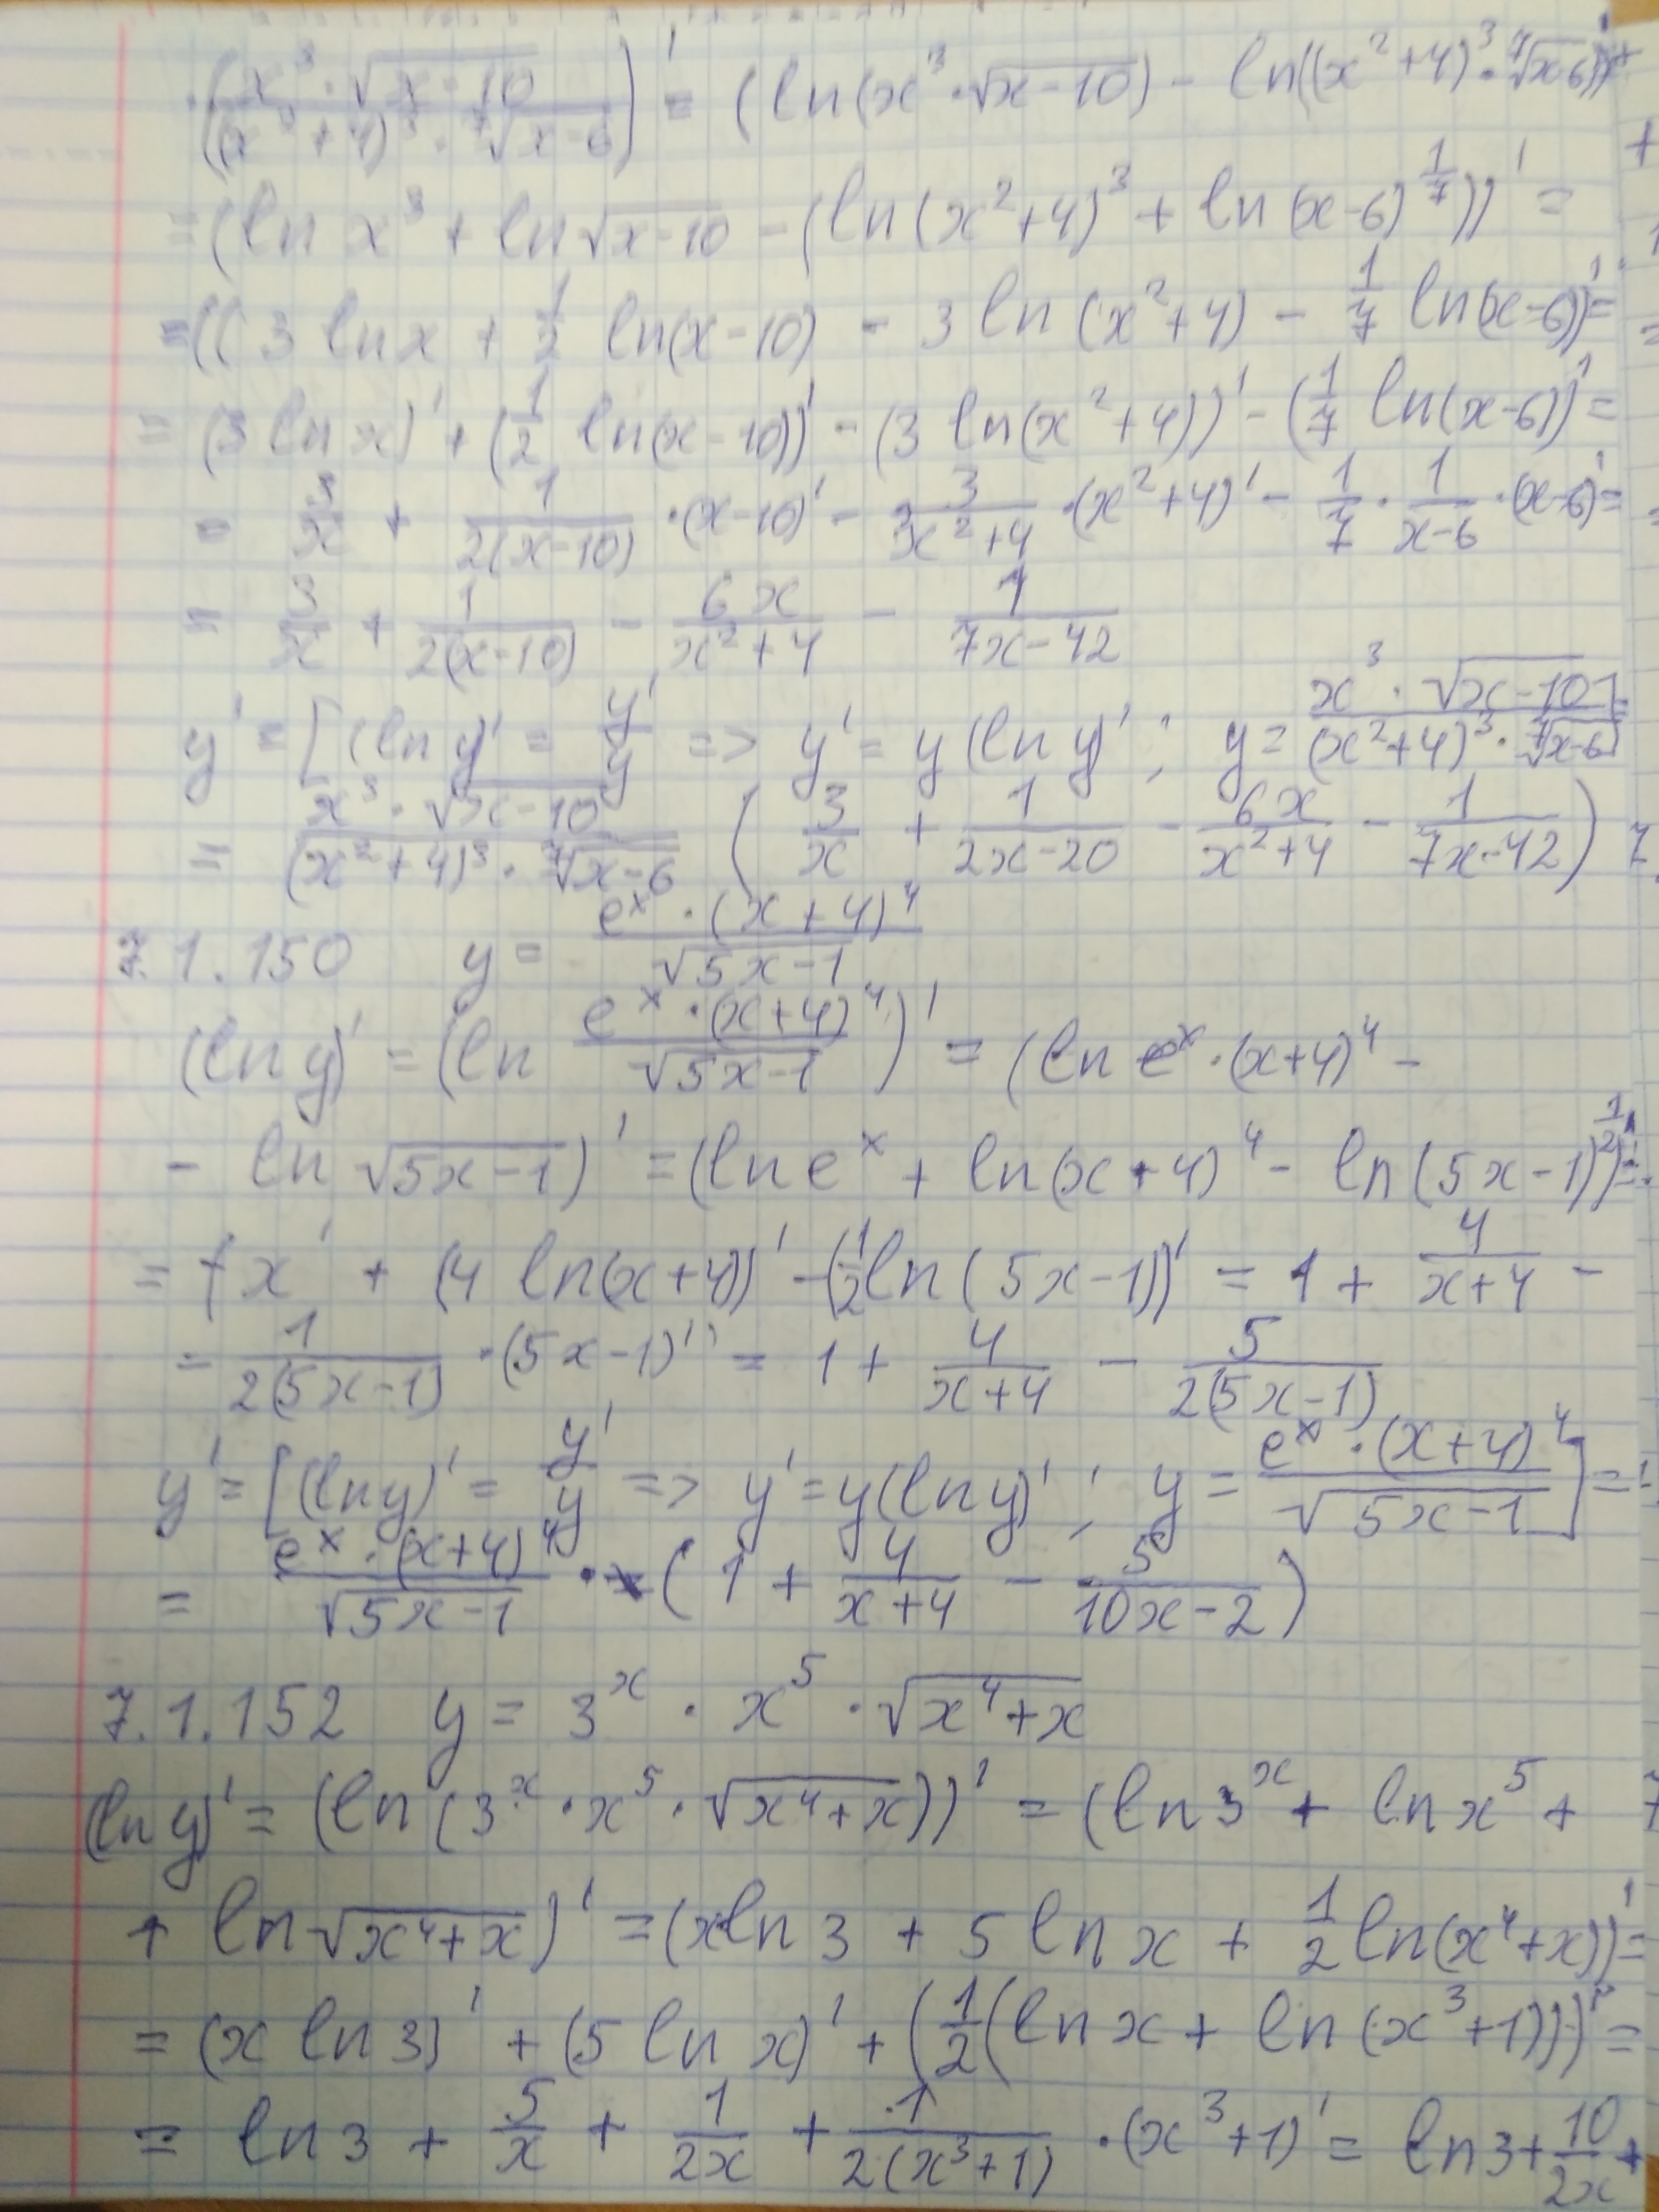 (x³·√(x-10) / (x²+4)³·⁷√(x-6))' = (ln(x³·√(x-10)) - ln((x²+4)³·⁷√(x-6)))' =
= (ln x³ + ln√(x-10) - (ln(x²+4)³ + ln(x-6)^(1/7)))' =
= ((3 ln x + 1/2 ln(x-10) - 3 ln(x²+4) - 1/7 ln(x-6))' =
= (3 ln x)' + (1/2 ln(x-10))' - (3 ln(x²+4))' - (1/7 ln(x-6))' =
= 3/x + 1/(2(x-10)) ·(x-10)' - 3/(x²+4) ·(x²+4)' - 1/7 · 1/(x-6) ·(x-6)' =
= 3/x + 1/(2(x-10)) - 6x/(x²+4) - 1/(7x-42)
y' = [(ln y)' = y'/y => y' = y (ln y)' ; y = x³·√(x-10) / (x²+4)³·⁷√(x-6)] =
= x³·√(x-10) / (x²+4)³·⁷√(x-6) (3/x + 1/(2x-20) - 6x/(x²+4) - 1/(7x-42))
7.1.150 y = e^x·(x+4)⁴ / √(5x-1)
(ln y)' = (ln e^x·(x+4)⁴ / √(5x-1))' = (ln e^x·(x+4)⁴ -
- ln √(5x-1))' = (ln e^x + ln(x+4)⁴ - ln(5x-1)^(1/2))' =
= x' + (4 ln(x+4))' - (1/2 ln(5x-1))' = 1 + 4/(x+4) -
- 1/(2(5x-1)) ·(5x-1)' = 1 + 4/(x+4) - 5/(2(5x-1))
y' = [(ln y)' = y'/y => y' = y(ln y)' ; y = e^x·(x+4)⁴ / √(5x-1)] =
= e^x·(x+4)⁴ / √(5x-1) · (1 + 4/(x+4) - 5/(10x-2))
7.1.152 y = 3^x · x⁵ · √(x⁴+x)
(ln y)' = (ln (3^x · x⁵ · √(x⁴+x)))' = (ln 3^x + ln x⁵ +
+ ln √(x⁴+x))' = (x ln 3 + 5 ln x + 1/2 ln(x⁴+x))' =
= (x ln 3)' + (5 ln x)' + (1/2 (ln x + ln (x³+1)))' =
= ln 3 + 5/x + 1/2x + 1/(2(x³+1)) ·(x³+1)' = ln 3 + 10/2x +